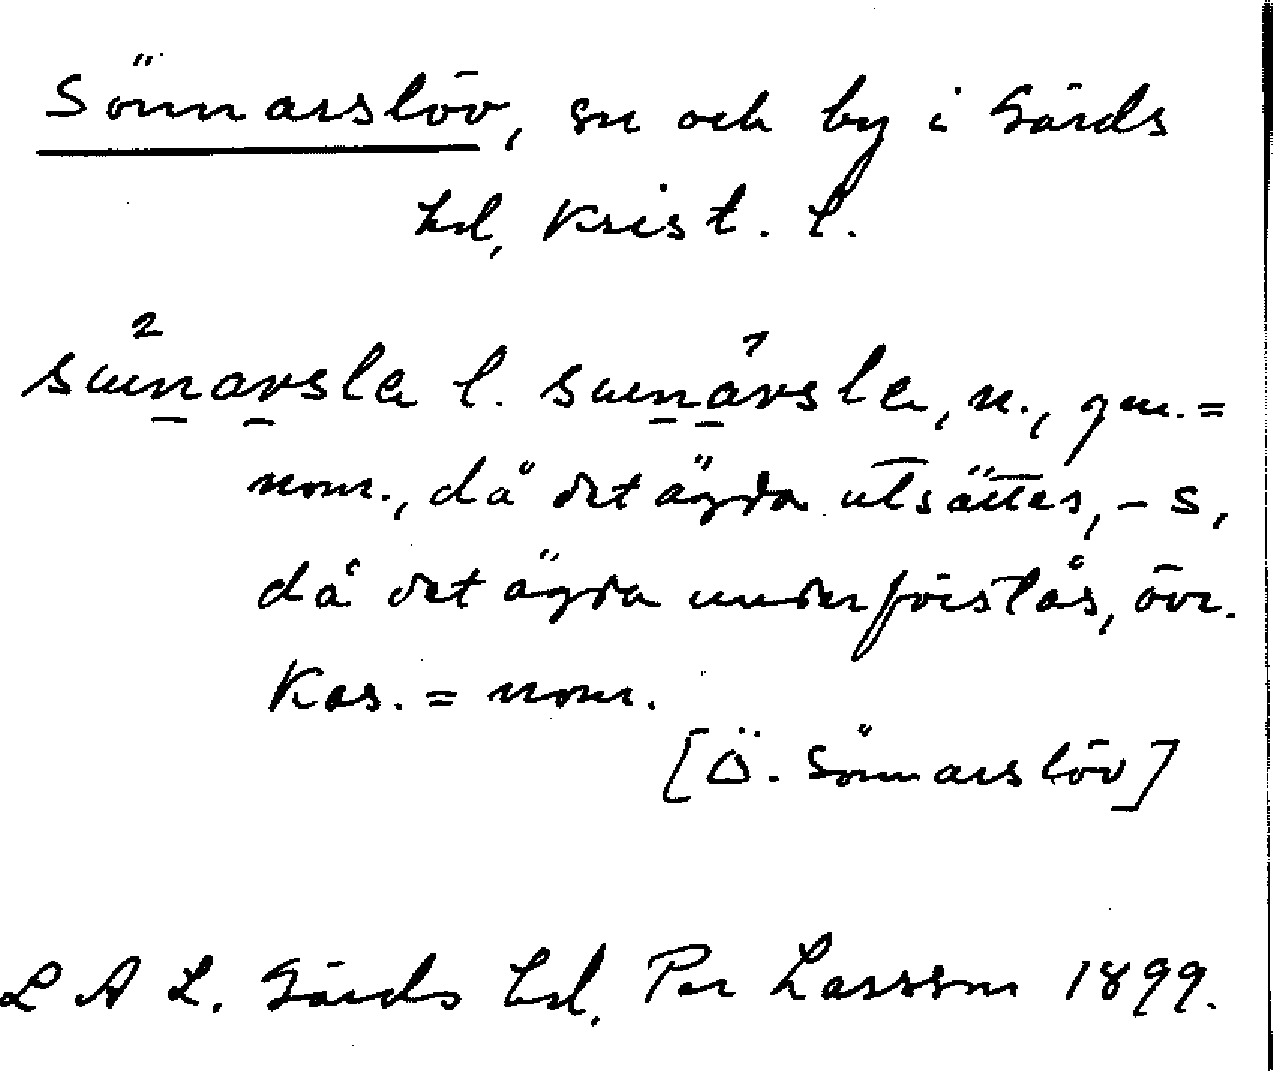 Sönnarslöv, sn och by i Gärds
hd, Krist. l.
sœ²n̠a̠rslœ l. sœn̠a̠¹rslœ, n., gen. =
nom., då det ägda utsättes, - s,
då det ägda underförstås, övr.
Kas. = nom.
[Ö. Sönnarslöv]
L A L. Gärds hd. Per Larsson 1899.